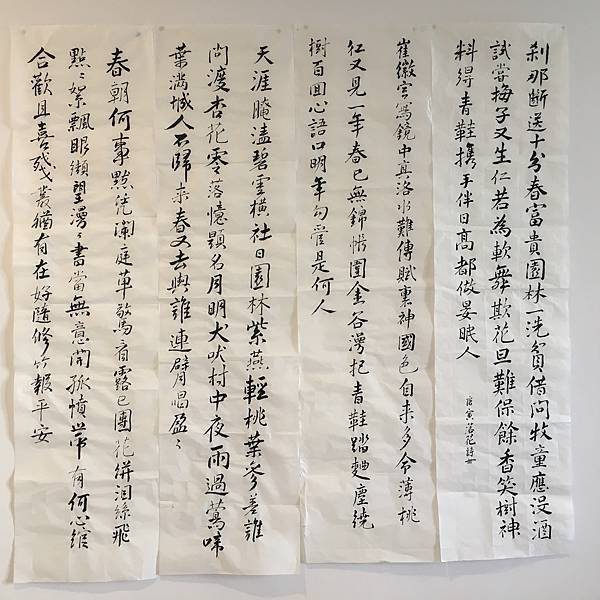 刹那断送十分春富貴園林一洗貧借問牧童應沒酒
試嘗梅子又生仁若為軟舞欺花旦難保餘香笑樹神
料得青鞋攜手伴日高都做晏眠人
唐寅落花詩
崔徽空寫鏡中真洛水難傳賦裏神國色自來多令薄桃
紅又見一年春已無錦帳圍金谷漫把青鞋踏麯塵繞
樹百回心語口明年勾管是何人
天涯晻溘碧雲橫社日園林紫燕輕桃葉參差誰
問渡杏花零落憶題名月明犬吠村中夜雨過鶯啼
葉滿城人不歸來春又去與誰連臂唱盈〻
春朝何事默憑闌庭草驚看露已團花併淚絲飛
點〻絮飄眼纈望漫〻書當無意開孤憤帶有何心綰
合歡且喜殘叢猶有在好隨修竹報平安